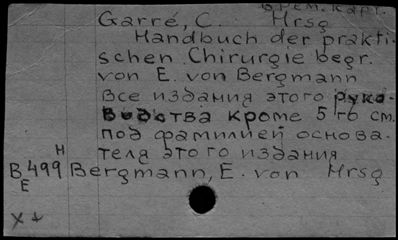 Врем. карт.
Garré, C. Hrsg
Handbuch der prakti-
schen Chirurgie begr.
von E. von Bergmann
Все издания этого руко-
водства кроме 5го см.
под фамилией основа-
теля этого издания
H
B 499 Bergmann, E. von Hrsg
E